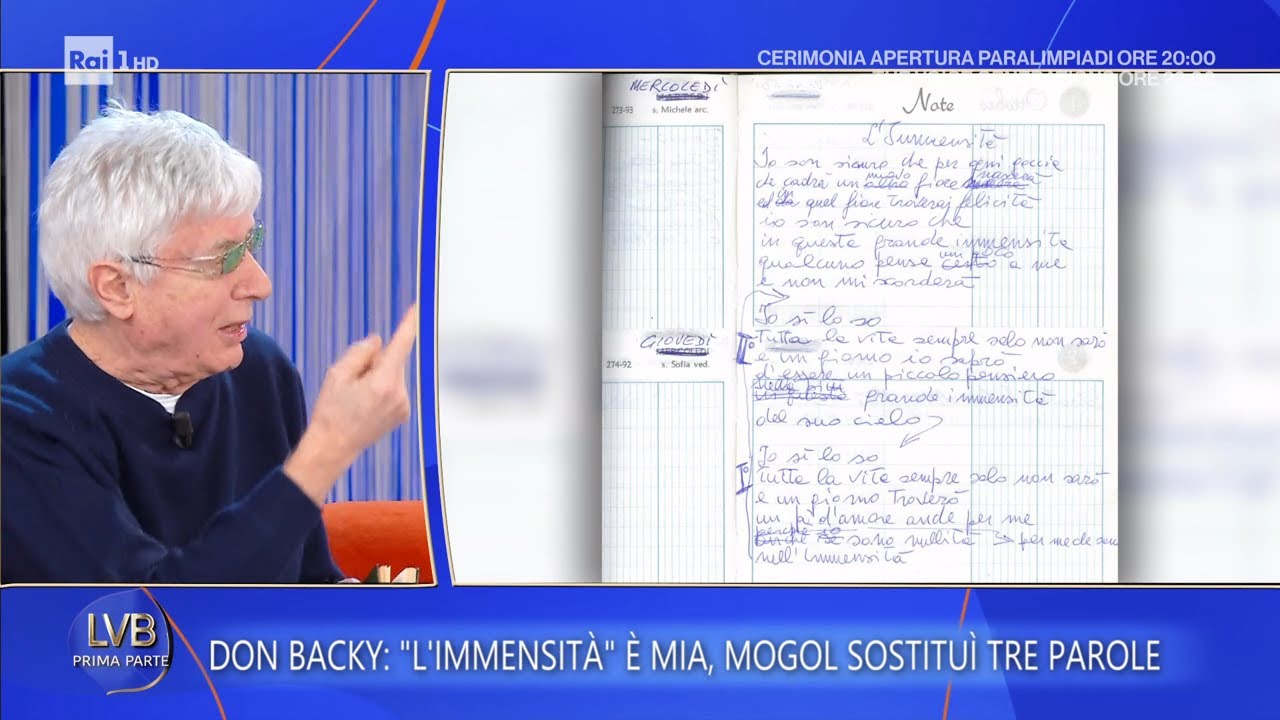 Rai 1 HD
CERIMONIA APERTURA PARALIMPIADI ORE 20:00
ORE
MERCOLEDÌ
273-93 s. Michele arc.
Note
L'Immensità
Io son sicuro che per ogni goccia
che cadrà un altro nuovo fiore nascerà
ed su quel fiore troverai felicità
io son sicuro che
in questa grande immensità
qualcuno pensa certo un poco a me
e non mi scorderà
Io sì lo so
IIº Tutta la vita sempre solo non sarò
e un giorno io saprò
d'essere un piccolo pensiero
nella più
in questa grande immensità
del suo cielo
GIOVEDÌ
274-92 s. Sofia ved.
Io sì lo so
Iº tutta la vita sempre solo non sarò
e un giorno troverò
un pò d'amore anche per me
perché io
sono nullità → per me che sono
nell'Immensità
LVB
PRIMA PARTE
DON BACKY: "L'IMMENSITÀ" È MIA, MOGOL SOSTITUÌ TRE PAROLE